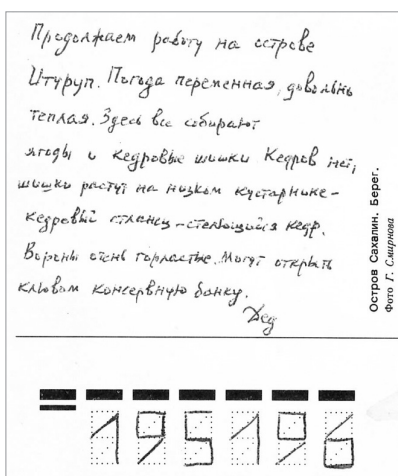 Продолжаем работу на острове
Итуруп. Погода переменная, довольно
теплая. Здесь все собирают
ягоды и кедровые шишки Кедров нет,
шишки растут на низком кустарнике-
кедровый стланец-стелющийся кедр.
Вороны очень горластые. Могут открыть
клювом консервную банку.
Дед
Остров Сахалин. Берег.
Фото Г. Смирнова
195196